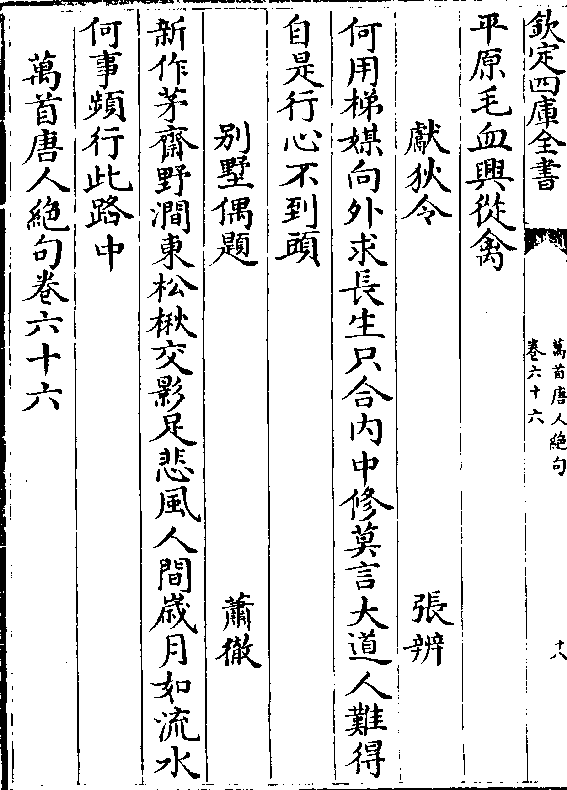 欽定四庫全書
萬首唐人絶句
卷六十六
十八
平原毛血興從禽
獻狄令 張辨
何用梯媒向外求長生只合内中修莫言大道人難得
自是行心不到頭
别墅偶題 蕭徹
新作茅齋野澗東松楸交影足悲風人間歲月如流水
何事頻行此路中
萬首唐人絶句卷六十六